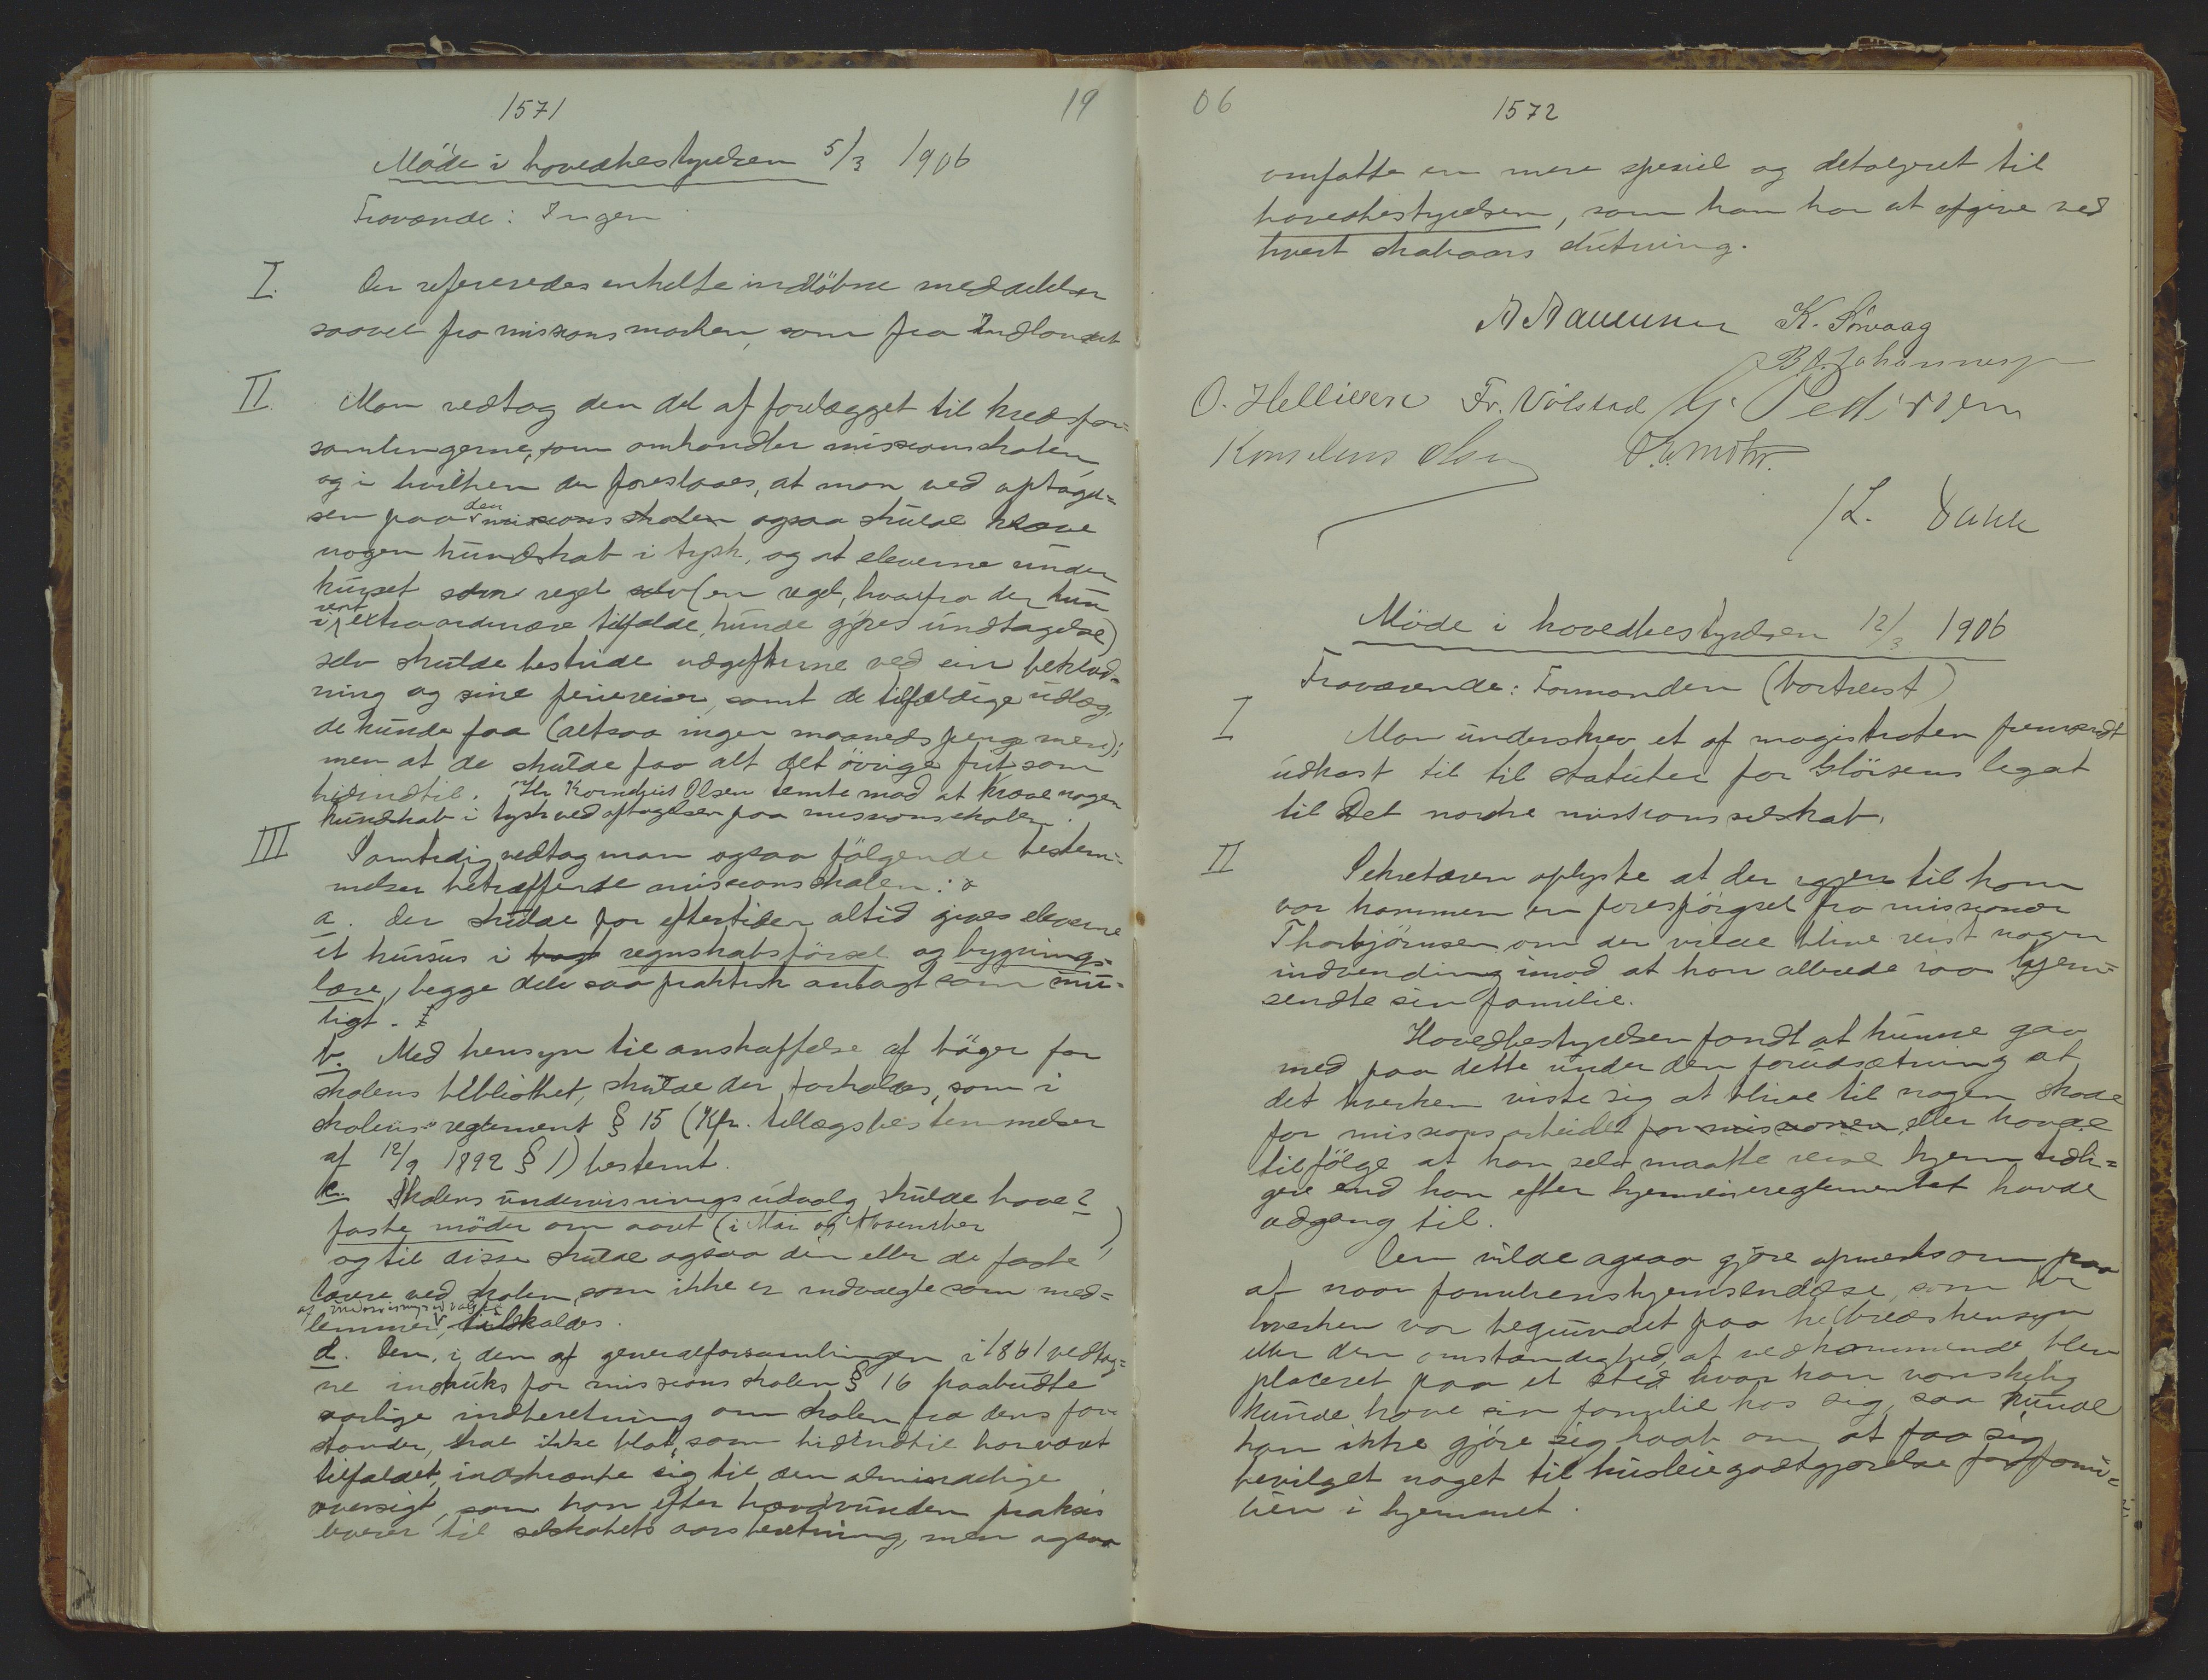 1571
19
Möde i hovedbestyrelsen 5/3 1906
Fraværende: Ingen
I. Der refereredes enkelte indlöbne meddelelser
saavel fra missionsmarken, som fra Indlandet
II. Man vedtog den del af forelægget til kredsfor-
samlingerne, som omhandler missionsskolen,
og i hvilken der foreslaaes, at man ved optagel-
sen paa den missionsskolen ogsaa skulde kræve
nogen kundskab i tysk, og at eleverne under
kurset som regel selv (en regel, hvorfra der kun
i rent extraordinære tilfælde kunde gjöres undtagelse)
selv skulde bestride udgifterne ved sin beklæd-
ning og sine feriereiser, samt de tilfældige udlæg,
de kunde faa (altsaa ingen maanedspenge mere);
men at de skulde faa alt det övrige frit som
hidindtil. Hr Kornelius Olsen stemte mod at kræve nogen
kundskab i tysk ved optagelsen paa missionsskolen.
III Samtidig vedtog man ogsaa fölgende bestem-
melser betræffende missionsskolen:
a. Der skulde for eftertiden altid gives eleverne
et kursus i regnskabsförsel og bygnings-
lære, begge dele saa praktisk anlagt som mu-
ligt.
b. Med hensyn til anskaffelse af böger for
skolens bibliothek, skulde der forholdes, som i
skolens reglement § 15 (Kfr. tillægsbestemmelser
af 12/9 1892 § 1) bestemt.
c. Skolens undervisningsudvalg skulde have 2
faste möder om aaret (i Mai og November),
og til disse skulde ogsaa den eller de faste
lærere ved skolen, som ikke er indvalgte som med-
lemmer af undervisningsudvalget, tilkaldes.
d. Den, i den af generalforsamlingen i 1861 vedtag-
ne instruks for missionsskolen § 16 paabudte
aarlige indberetning om skolen fra dens for-
stander, skal ikke blot, som hidindtil har været
tilfældet, indskrænke sig til den almindelige
oversigt, som han efter hævdvunden praksis
leverer til selskabets aarsberetning, men ogsaa
06
1572
omfatte en mere speciel og detaljeret til
hovedbestyrelsen, som han har at afgive ved
hvert skoleaars slutning.
K. Sørvaag
B. A. Johannesen
O. Helliesen Fr. Völstad G. Pedersen
Kornelius Olsen
L. Dahle
Möde i hovedbestyrelsen 12/3 1906
Fraværende: Formanden (bortreist)
I Man underskrev et af magistraten fremsendt
udkast til til statuter for Glörsens legat
til Det norske missionsselskab.
II Sekretæren oplyste at der igjen til ham
var kommen en forespörgsel fra missionær
Thorbjörnsen om der vilde blive reist nogen
indvending imod at han allerede iaar hjem-
sendte sin familie.
Hovedbestyrelsen fandt at kunne gaa
med paa dette under den forudsætning at
det hverken viste sig at blive til nogen skade
for missionsarbeidet for missionen, eller havde
tilfölge at han selv maatte reise hjem tidli-
gere end han efter hjemreisereglementet havde
adgang til.
Den vilde ogsaa gjöre opmerksom paa
at naar familiens hjemsendelse, som her
hverken var begrundet paa helbredshensyn
eller den omstændighed, at vedkommende blev
placeret paa et sted hvor han vanskelig
kunde have sin familie hos sig, saa kunde
han ikke gjöre sig haab om at faa sig
bevilget noget til husleiegodtgjörelse for fami-
lien i hjemmet.